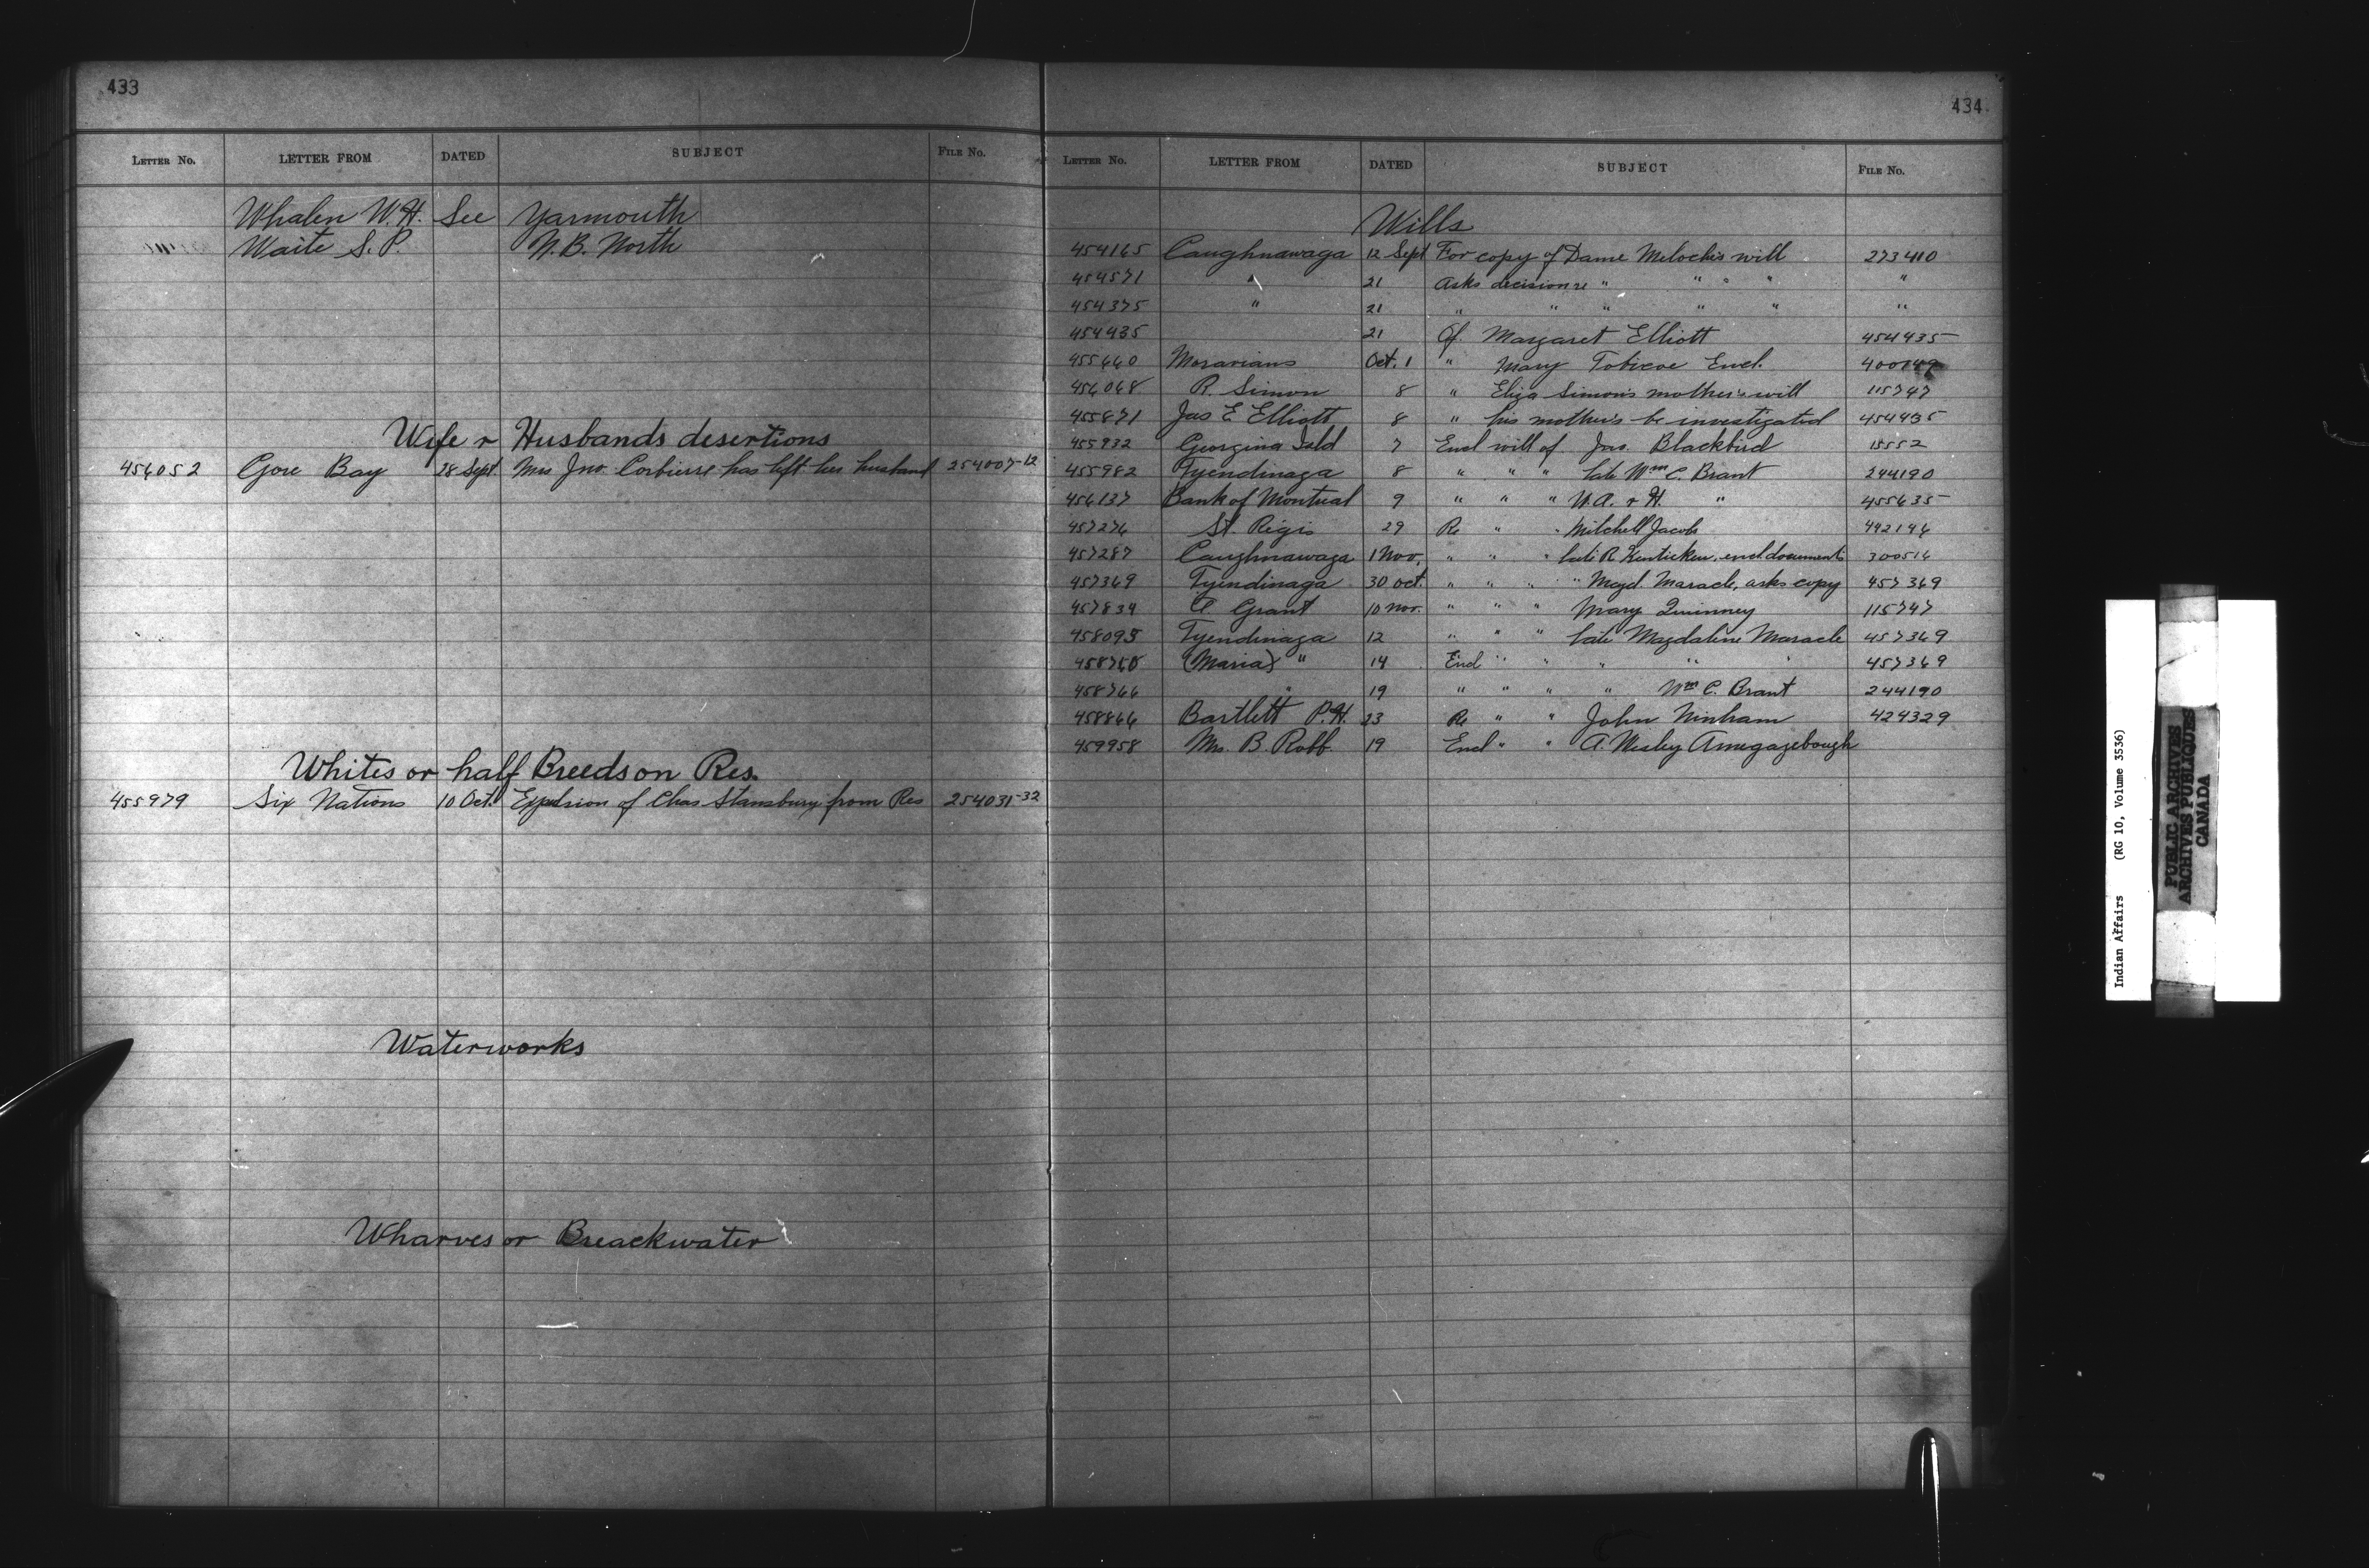 433
LETTER No. LETTER FROM DATED SUBJECT FILE No.
Whalen W.H. See Yarmouth
Waite S.P. N.B. North
Wife & Husbands desertions
456052 Gore Bay 28 Sept. Mrs Jno. Corbierre has left her husband 254007-12
Whites or half Breeds on Res.
455979 Six Nations 10 Oct. Expulsion of Chas Stansbury from Res 254031-32
Waterworks
Wharves or Breackwater
434
LETTER No. LETTER FROM DATED SUBJECT FILE No.
Wills
454165 Caughnawaga 12 Sept For copy of Dame Meloche's will 273410
454571 " 21 Asks decision re " " " " "
454375 " 21 " " " " " "
454435 21 Of Margaret Elliott 454435
455660 Moravians Oct. 1 " Mary Tobicoe Encl.
456068 R. Simon 8 " Eliza Simon's mother's will 115747
455871 Jas E Elliott 8 " his mother's be investigated 454435
455932 Georgina Isld 7 Encl will of Jas. Blackbird 15552
455982 Tyendinaga 8 " " " late Wm C. Brant 244190
456137 Bank of Montreal 9 " " " W.A. & H. " 455635
457276 St. Regis 29 Re " " Mitchell Jacob 442146
457287 Caughnawaga 1 Nov. " " " late R. encl. documents 300516
457369 Tyendinaga 30 Oct. " " " " Magd. Maracle, asks copy 457369
457834 C. Grant 10 Nov. " " " Mary Quinney 115747
458095 Tyendinaga 12 " " " late Magdaline Maracle 457369
458760 (Maria) " 14 Encl " " " " " 457369
458766 " 19 " " " " Wm C. Brant 244190
458866 Bartlett P.H. 23 Re " " John Ninham 424329
459958 Mrs. B. Robb. 19 Encl " " A. Wesley Amegagebough
Indian Affairs (RG 10, Volume 3536)
PUBLIC ARCHIVES
ARCHIVES PUBLIQUES
CANADA